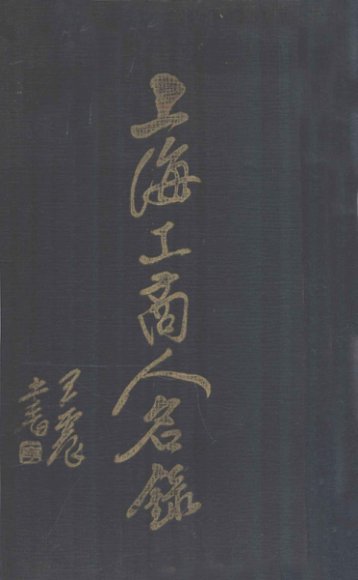 上海工商人名錄
王震
書